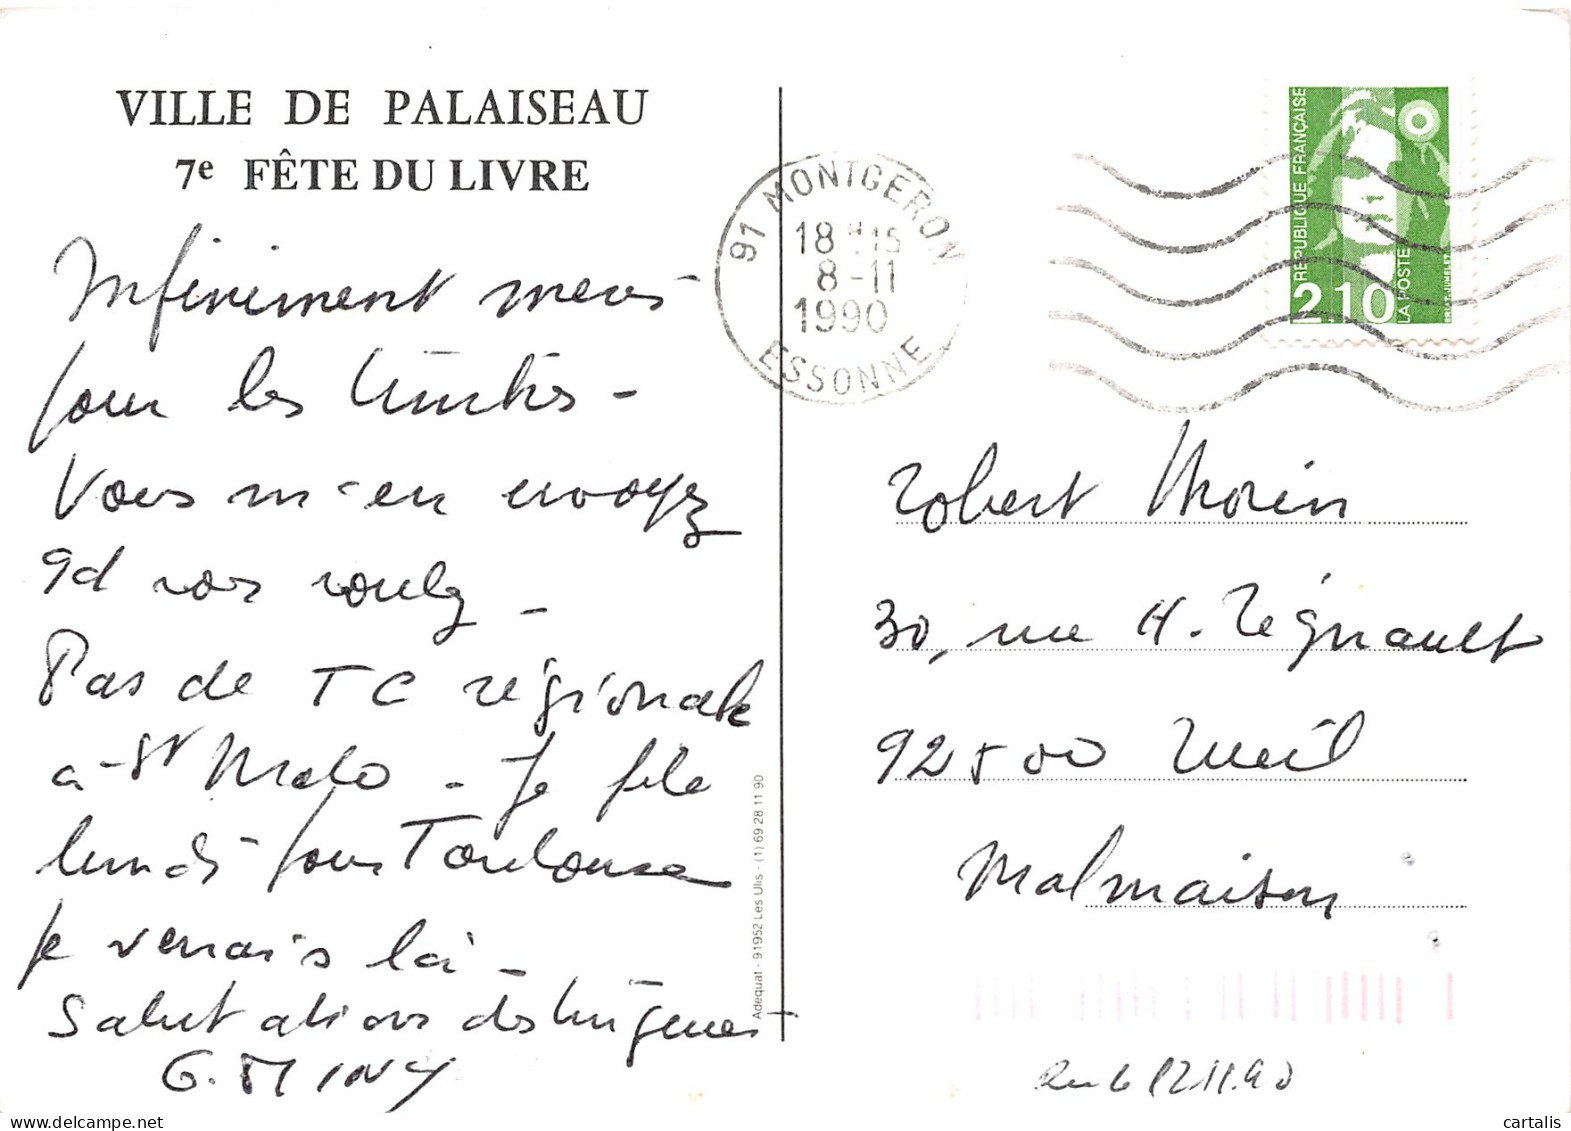 VILLE DE PALAISEAU
7e FÊTE DU LIVRE
Infiniment merci
pour les timbres -
Vous m'en envoyez
qd vous voulez -
Pas de TC régionale
a - St Malo - Je file
lundi pour Toulouse
Je venais là -
Salutations distinguées
G. MINY
Adequat - 91952 Les Ulis - (1) 69 28 11 90
91 MONTGERON
18 H 15
8-11
1990
ESSONNE
RÉPUBLIQUE FRANÇAISE
2,10
LA POSTE
BRIAT-JUMELET
Robert Morin
30, rue H. Régnault
92500 Rueil
Malmaison
12.11.90
cartalis
delcampe.net